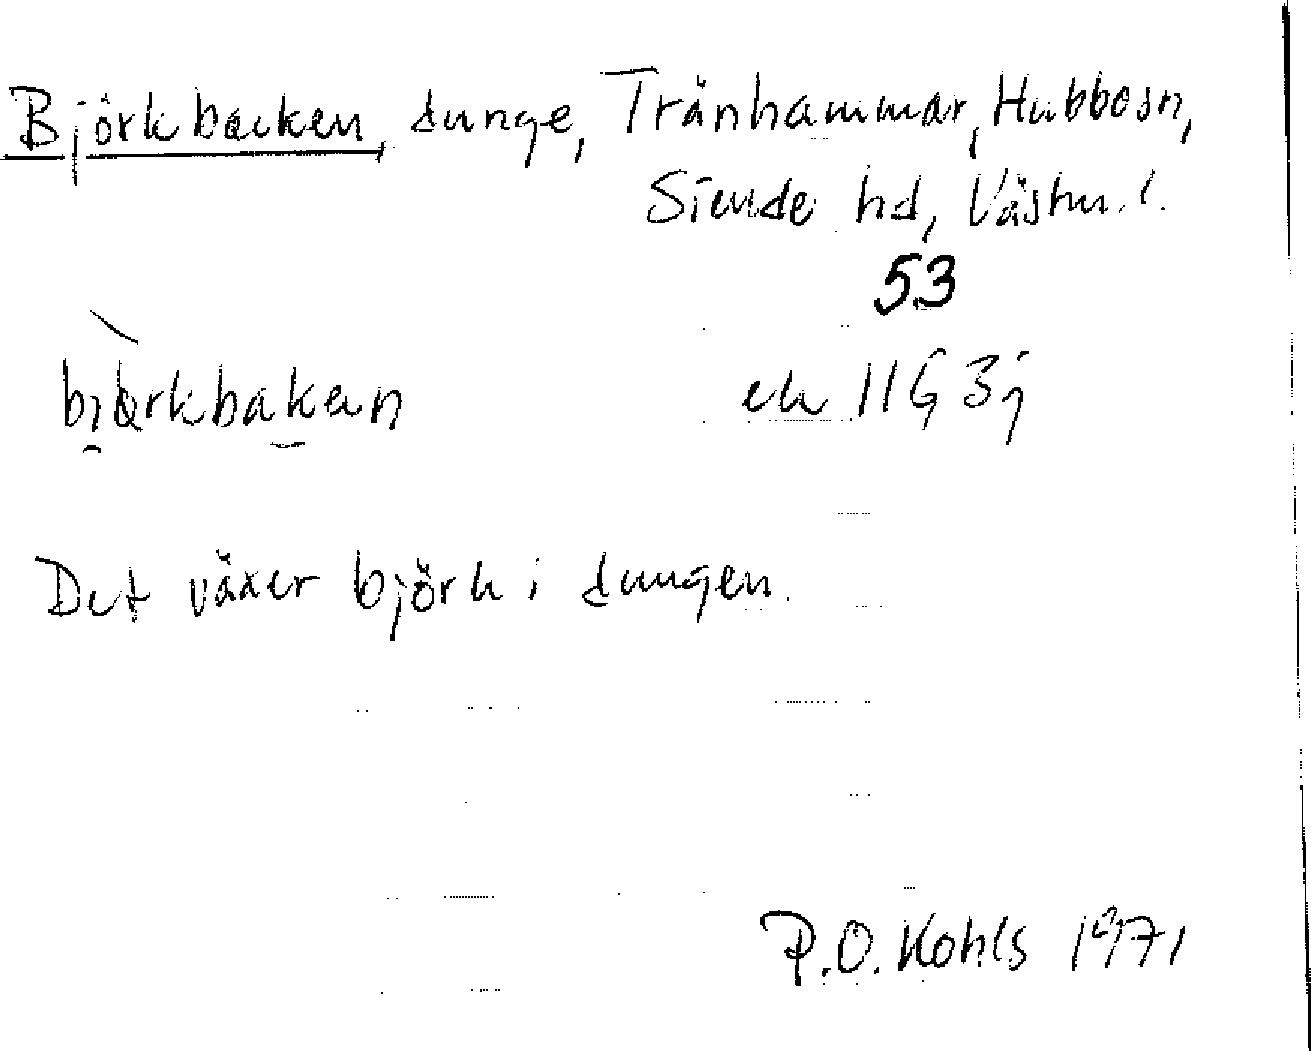 Björkbacken, dunge, Tränhammar, Hubbo sn,
Siende hd, Västm. l.
53
björkbakan ek 11G 3j
Det växer björk i dungen.
P.O. Kohls 1971